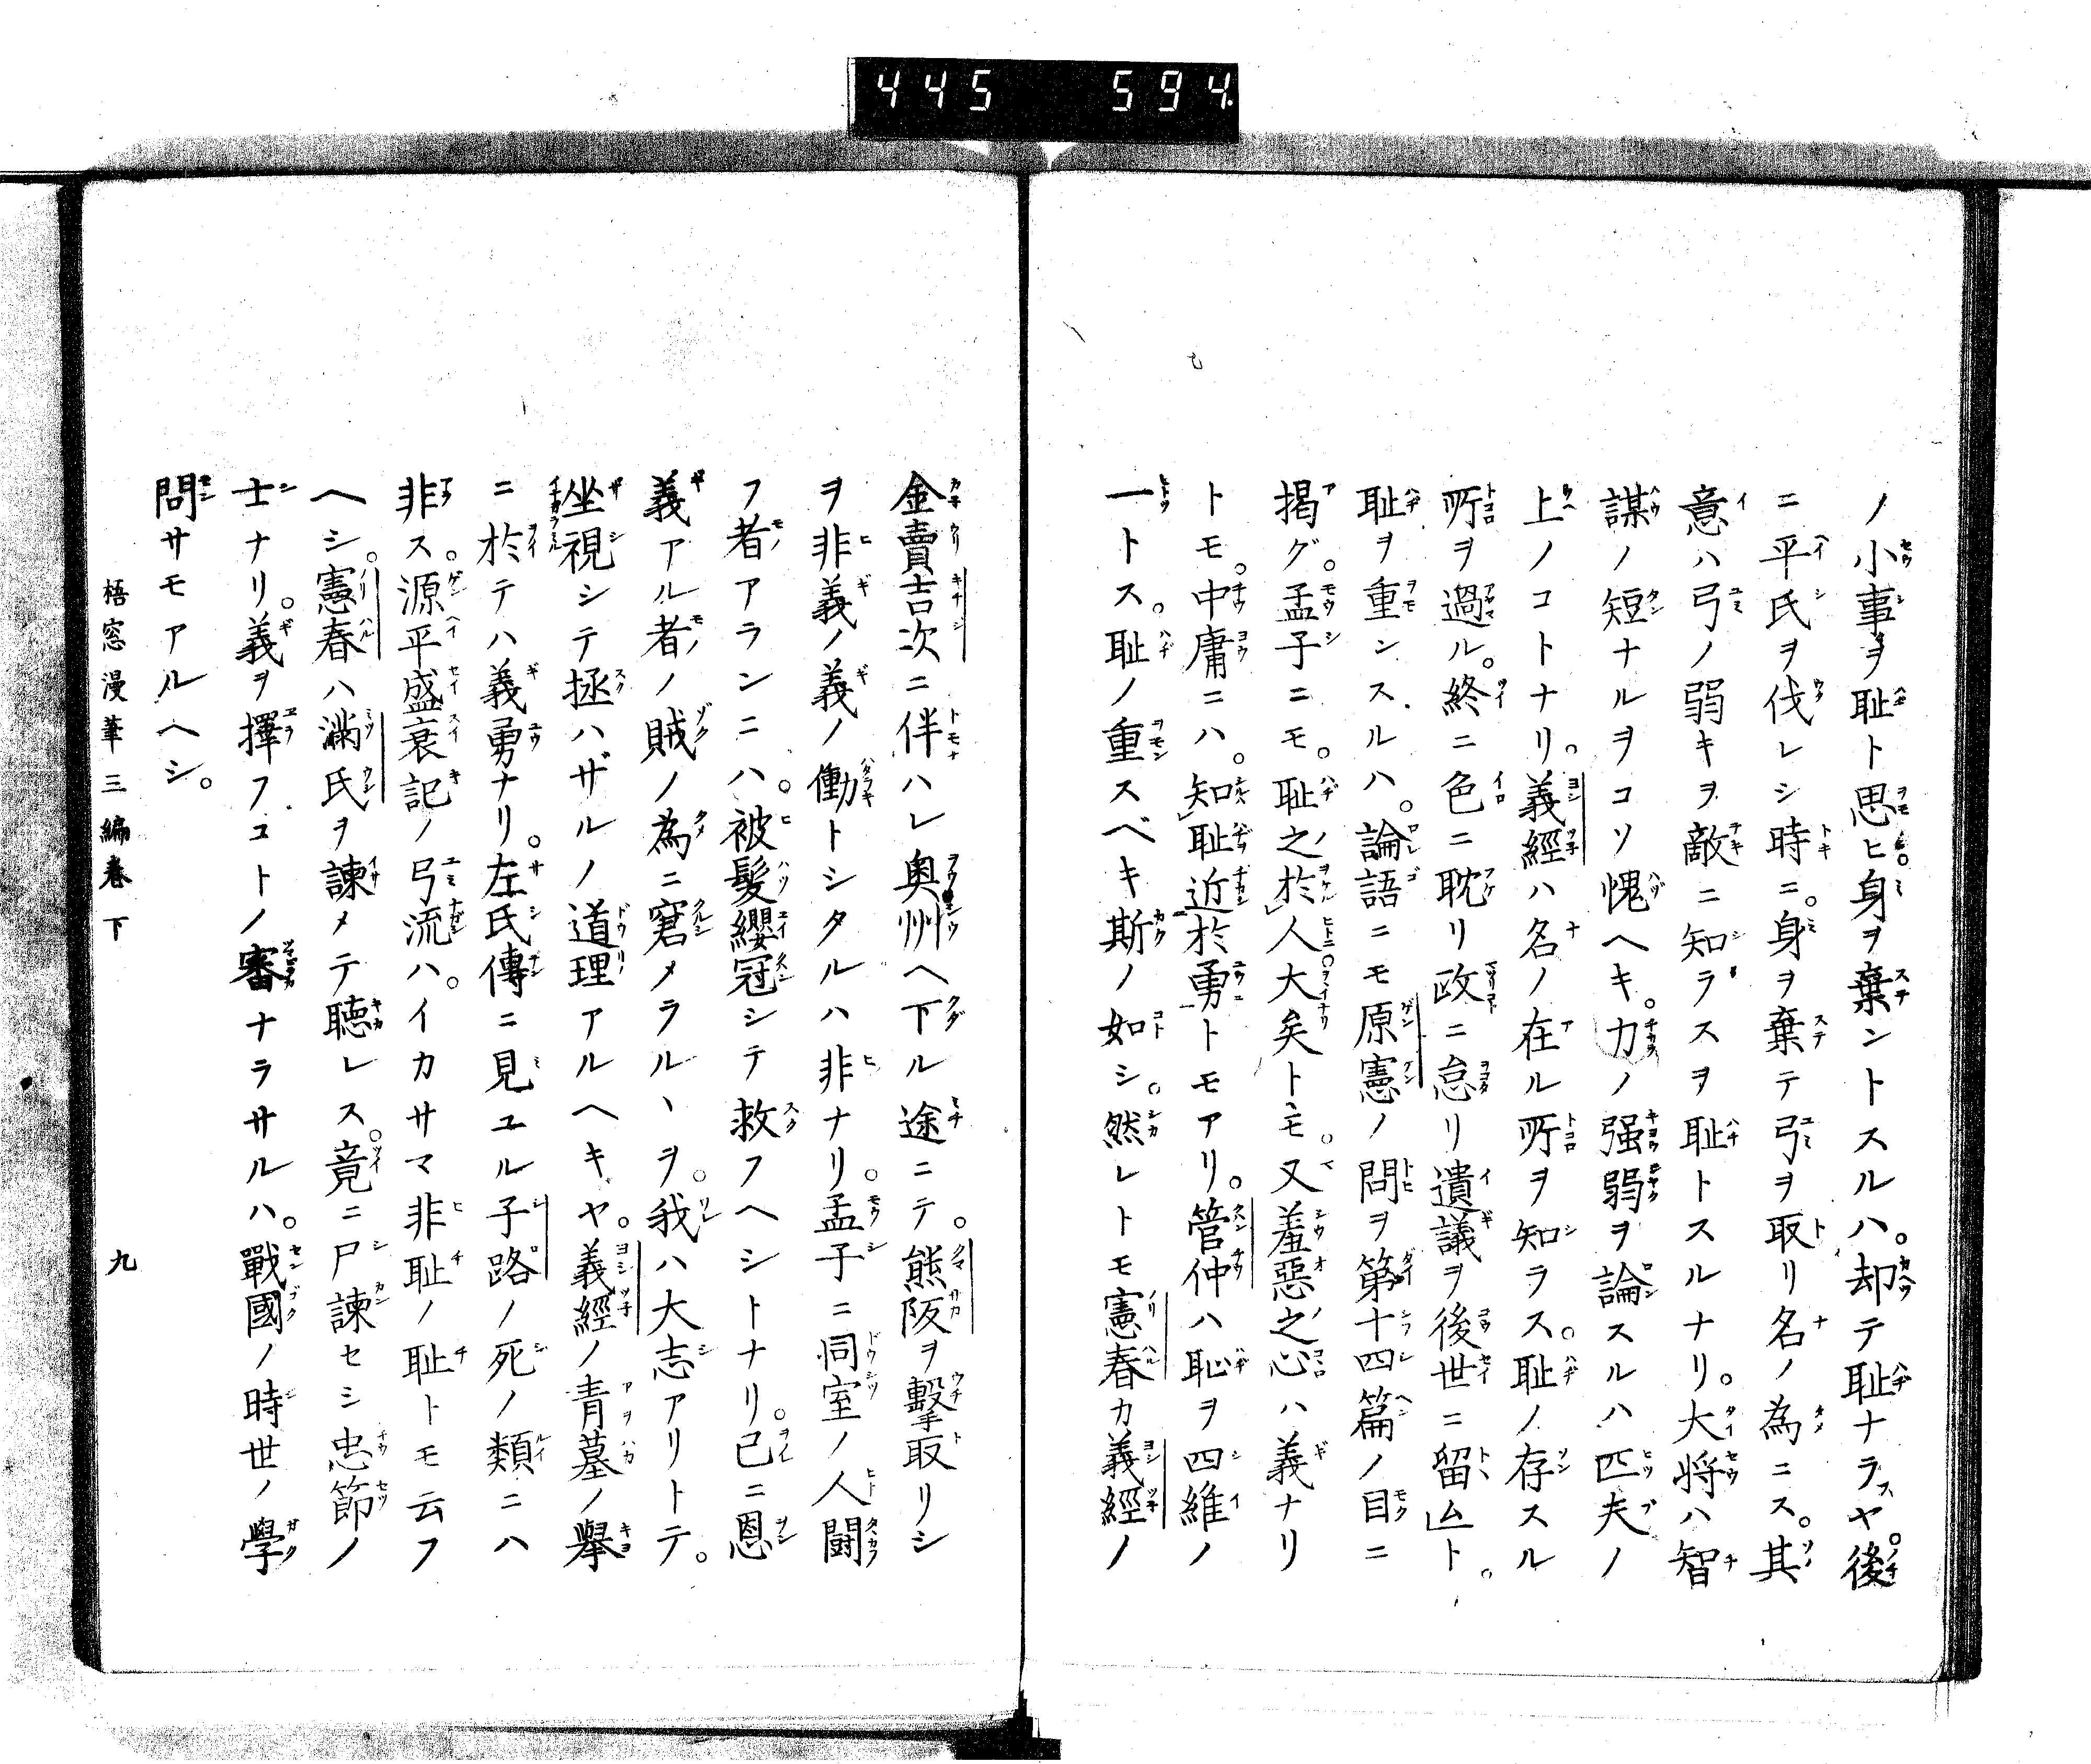 445 594.
ノ小事ヲ耻ト思ヒ。身ヲ棄ントスルハ。却テ耻ナラスヤ。後
ニ平氏ヲ伐レシ時ニ。身ヲ棄テ弓ヲ取リ名ノ為ニス。其
意ハ弓ノ弱キヲ敵ニ知ラスヲ耻トスルナリ。大将ハ智
謀ノ短ナルヲコソ愧ヘキ。力ノ强弱ヲ論スルハ匹夫ノ
上ノコトナリ。義經ハ名ノ在ル所ヲ知ラス。耻ノ存スル
所ヲ過ル。終ニ色ニ耽リ政ニ怠リ遺議ヲ後世ニ留ムト。
耻ヲ重ンスルハ。論語ニモ原憲ノ問ヲ第十四篇ノ目ニ
揭グ。孟子ニモ。耻之於人大矣トモ。又羞惡之心ハ義ナリ
トモ。中庸ニハ。知耻近於勇トモアリ。管仲ハ恥ヲ四維ノ
一トス。耻ノ重スベキ斯ノ如シ。然レトモ憲春カ義經ノ
金賣吉次ニ伴ハレ奥州ヘ下ル途ニテ。熊阪ヲ擊取リシ
ヲ非義ノ義ノ働トシタルハ非ナリ。孟子ニ同室ノ人闘
フ者アランニハ。被髮纓冠シテ救フヘシトナリ。已ニ恩
義アル者ノ賊ノ為ニ窘メラルヽヲ。我ハ大志アリトテ。
坐視シテ拯ハザルノ道理アルヘキヤ。義經ノ青墓ノ擧
ニ於テハ義勇ナリ。左氏傳ニ見ユル子路ノ死ノ類ニハ
非ス。源平盛衰記ノ弓流ハ。イカサマ非耻ノ耻トモ云フ
ヘシ。憲春ハ滿氏ヲ諫メテ聴レス。竟ニ尸諫セシ忠節ノ
士ナリ。義ヲ擇フコトノ審ナラサルハ。戰國ノ時世ノ學
問サモアルヘシ。
梧窓漫筆三編卷下 九